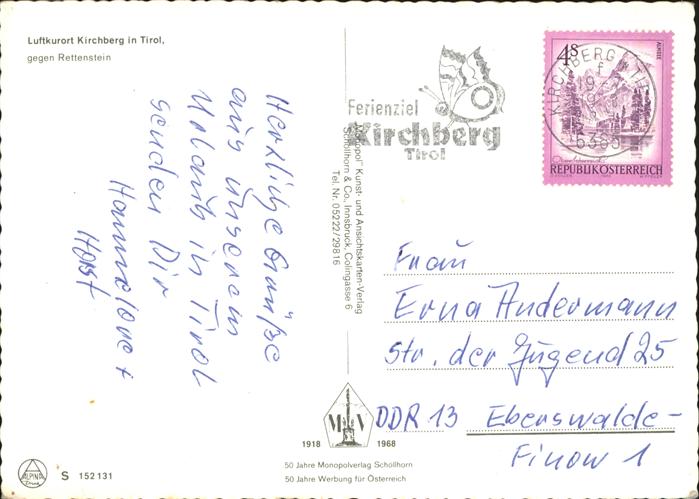 Luftkurort Kirchberg in Tirol,
gegen Rettenstein
Herzliche Grüße
aus unserem
Urlaub in Tirol
senden Dir
Hannelore +
Horst
"Monopol" Kunst- und Ansichtskarten-Verlag
Schöllhorn & Co., Innsbruck, Colingasse 6
Tel. Nr. 05222/29816
Ferienziel
Kirchberg
Tirol
KIRCHBERG
6365
4S
ALMSEE
REPUBLIK ÖSTERREICH
Frau
Erna Andermann
Str. der Jugend 25
DDR 13 Eberswalde-
Finow 1
MV
1918 1968
50 Jahre Monopolverlag Schöllhorn
50 Jahre Werbung für Österreich
ALPINA
S 152131